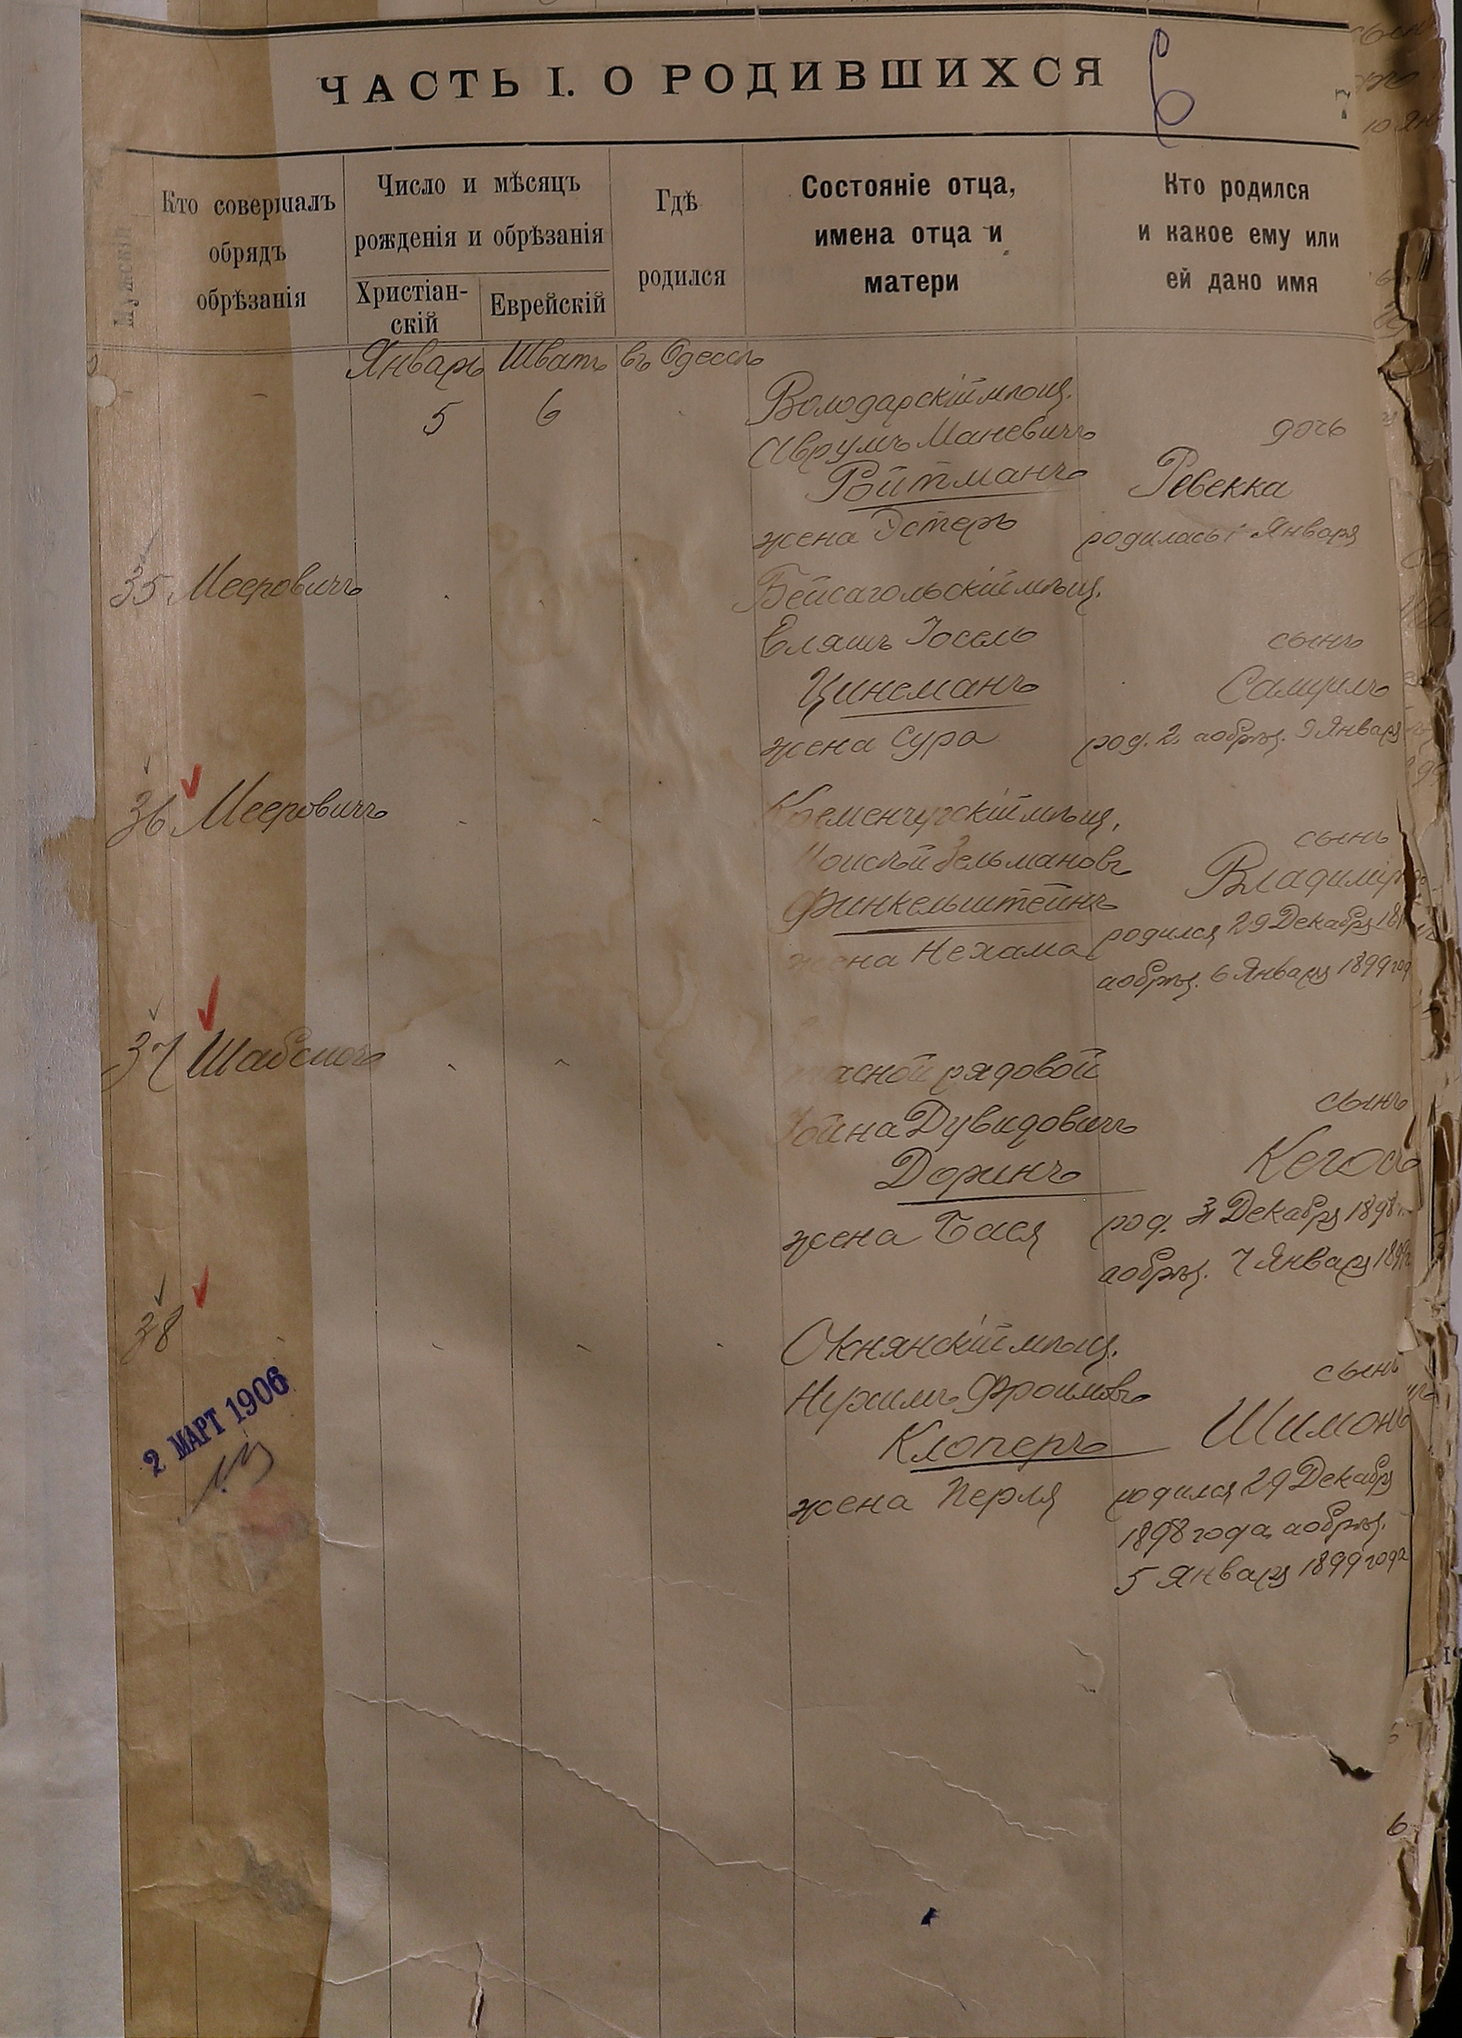 ЧАСТЬ I. О РОДИВШИХСЯ
6
7
Кто совершалъ
обрядъ
обрѣзанія
Число и мѣсяцъ
рожденія и обрѣзанія
Христіан-
скій
Еврейскій
Гдѣ
родился
Состояніе отца,
имена отца и
матери
Кто родился
и какое ему или
ей дано имя
Январь Шватъ въ Одессѣ
5 6
Володарскій мѣщ.
Аврумъ Маневичъ
Ройтманъ
жена Эстеръ
дочь
Ревекка
родилась 1 Января
35 Мееровичъ
Бейсагольскій мѣщ.
Еляшъ Іосель
Цинсманъ
жена Сура
сынъ
Самуилъ
род. 2, а обрѣз. 9 Января
36 Мееровичъ
Кременчугскій мѣщ.
Моисѣй Зельмановъ
Финкельштейнъ
жена Нехама
сынъ
Владиміръ
родился 29 Декабря
а обрѣз. 6 Января 1899 год
37
рядовой
Дувидовичъ
Доринъ
жена Бася
сынъ
род. 31 Декабря 1898
а обрѣз. 7 Января 1899
38
Окнянскій мѣщ.
Нухимъ Фроимовъ
Клоперъ
жена Перля
сынъ
Шимонъ
родился 29 Декабря
1898 года, а обрѣз.
5 Января 1899 года
2 МАРТ 1906
6